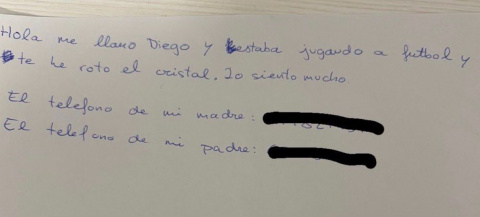 Hola me llamo Diego y estaba jugando a futbol y
te he roto el cristal. lo siento mucho
El telefono de mi madre:
El telefono de mi padre: